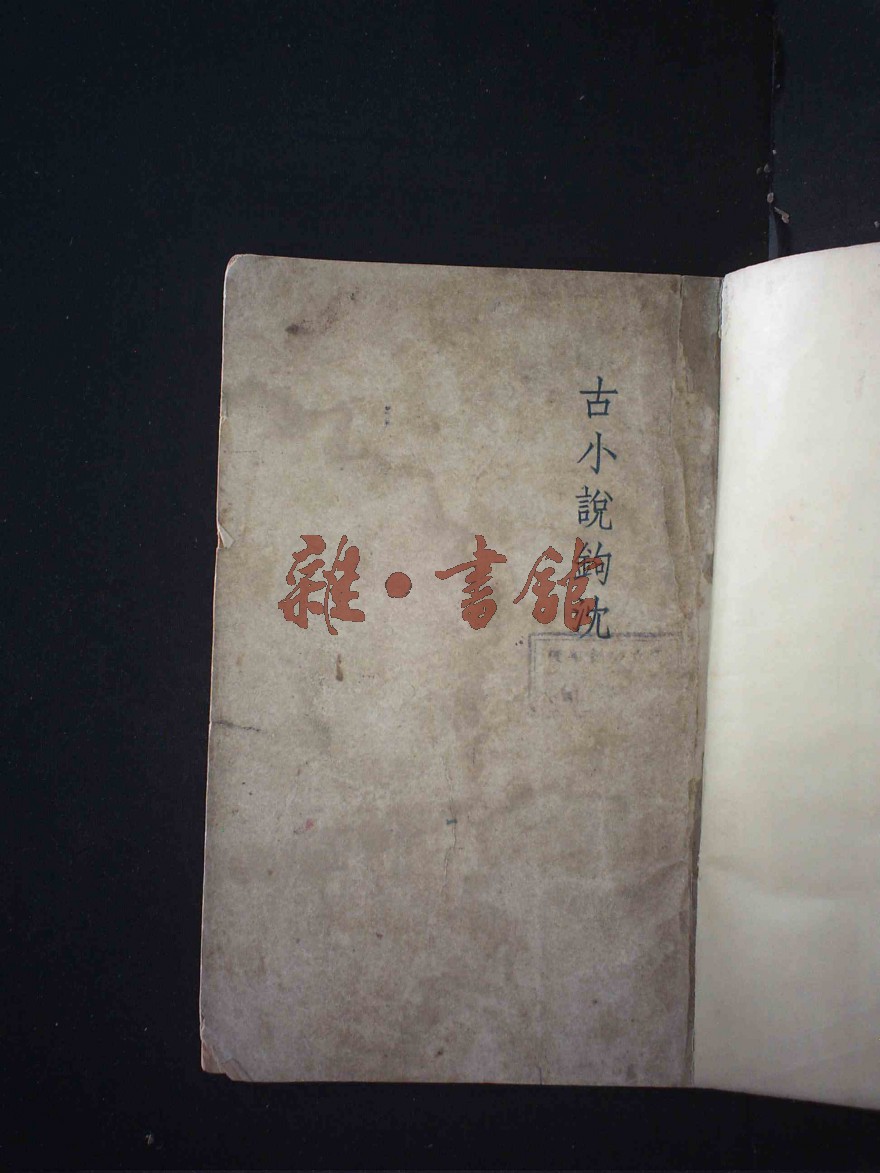 古小說鉤沈
雜·書館